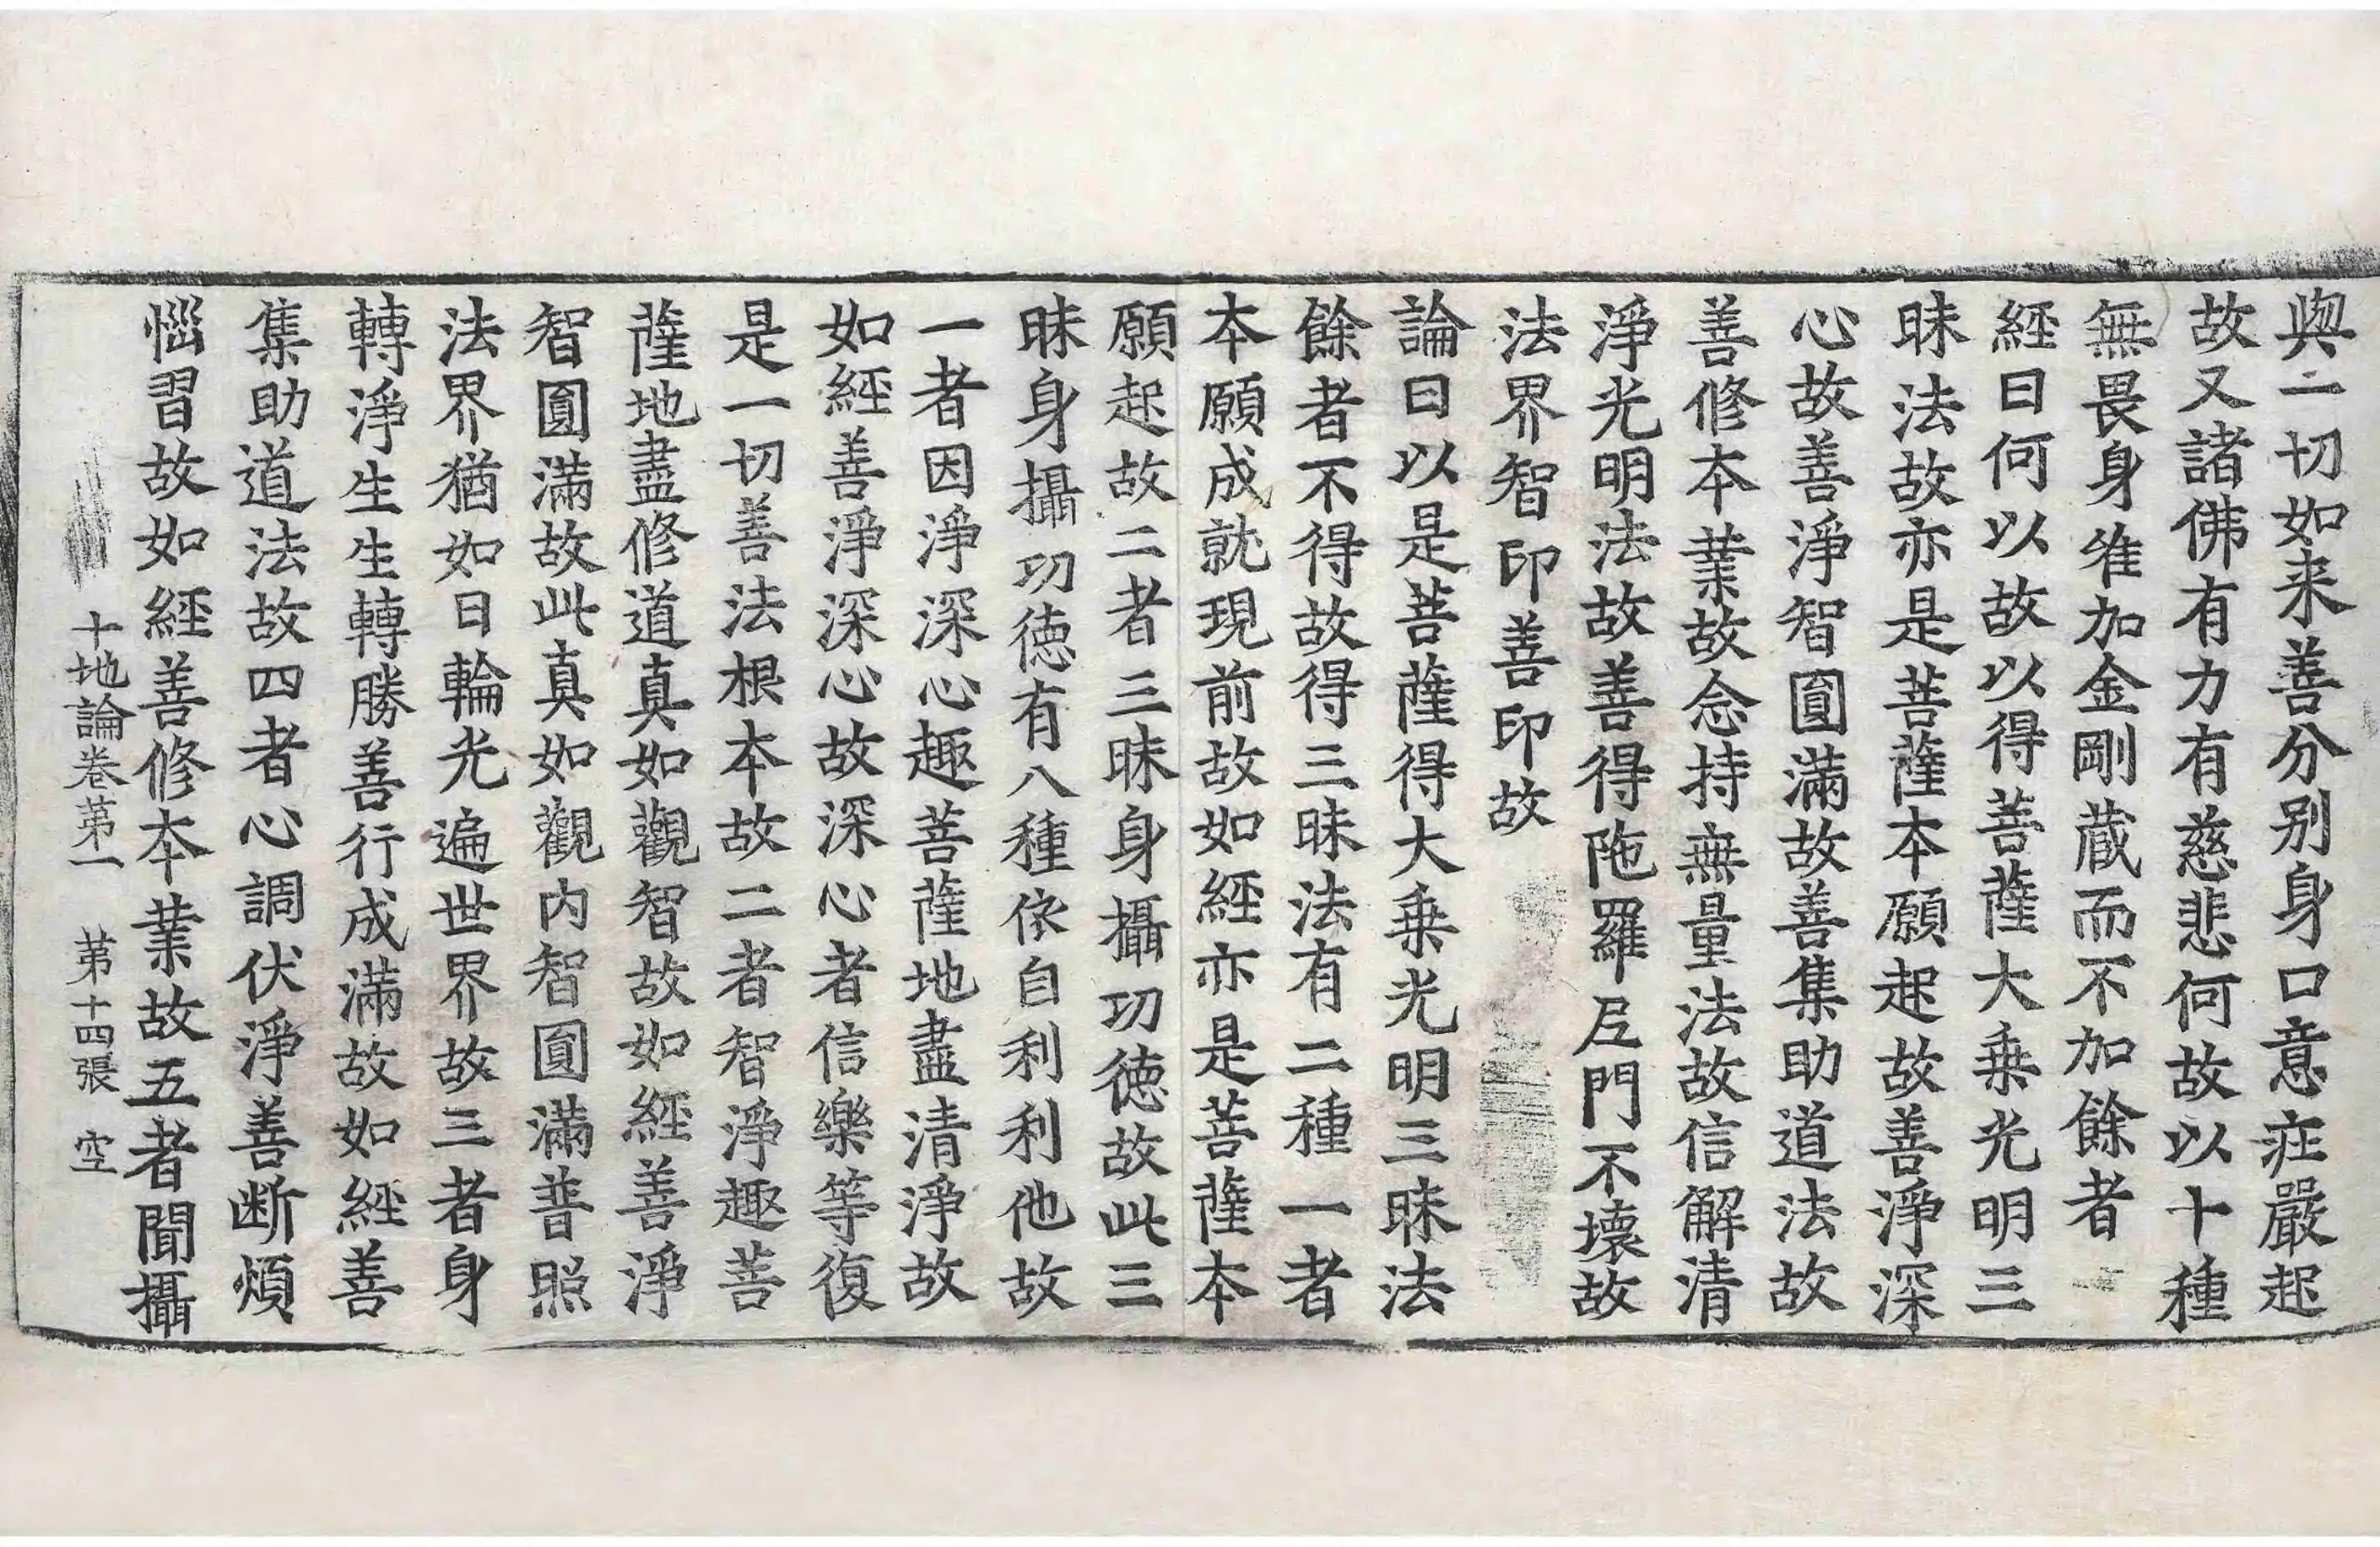 與一切如来善分别身口意庄嚴起
故又諸佛有力有慈悲何故以十種
無畏身唯加金剛蔵而不加餘者
經曰何以故以得菩薩大乗光明三
昧法故亦是菩薩本願起故善淨深
心故善淨智圓滿故善集助道法故
善修本業故念持無量法故信解清
淨光明法故善得陁羅尼門不壞故
法界智印善印故
論曰以是菩薩得大乗光明三昧法
餘者不得故得三昧法有二種一者
本願成就現前故如經亦是菩薩本
願起故二者三昧身攝功德故此三
昧身攝功德有八種依自利利他故
一者因淨深心趣菩薩地盡清淨故
如經善淨深心故深心者信樂等復
是一切善法根本故二者智淨趣菩
薩地盡修道真如觀智故如經善淨
智圓滿故此真如觀内智圓滿普照
法界猶如日輪光遍世界故三者身
轉淨生生轉勝善行成滿故如經善
集助道法故四者心調伏淨善断煩
惱習故如經善修本業故五者聞攝
十地論卷苐一 苐十四張 空